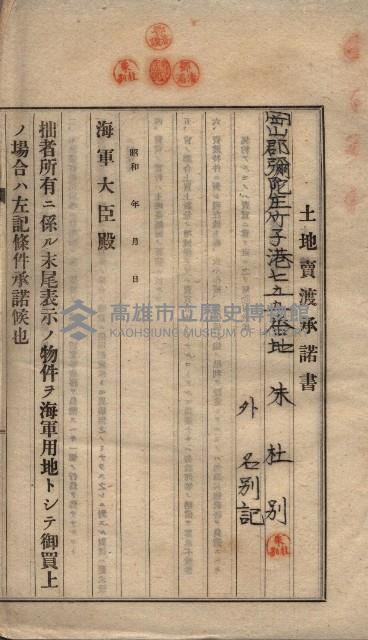 土地賣渡承諾書
岡山郡彌陀庄竹子港七五九番地 朱杜別
外 名別記
昭和 年 月 日
海軍大臣殿
拙者所有ニ係ル末尾表示ノ物件ヲ海軍用地トシテ御買上
ノ場合ハ左記條件承諾候也
高雄市立歷史博物館
KAOHSIUNG MUSEUM OF HISTORY